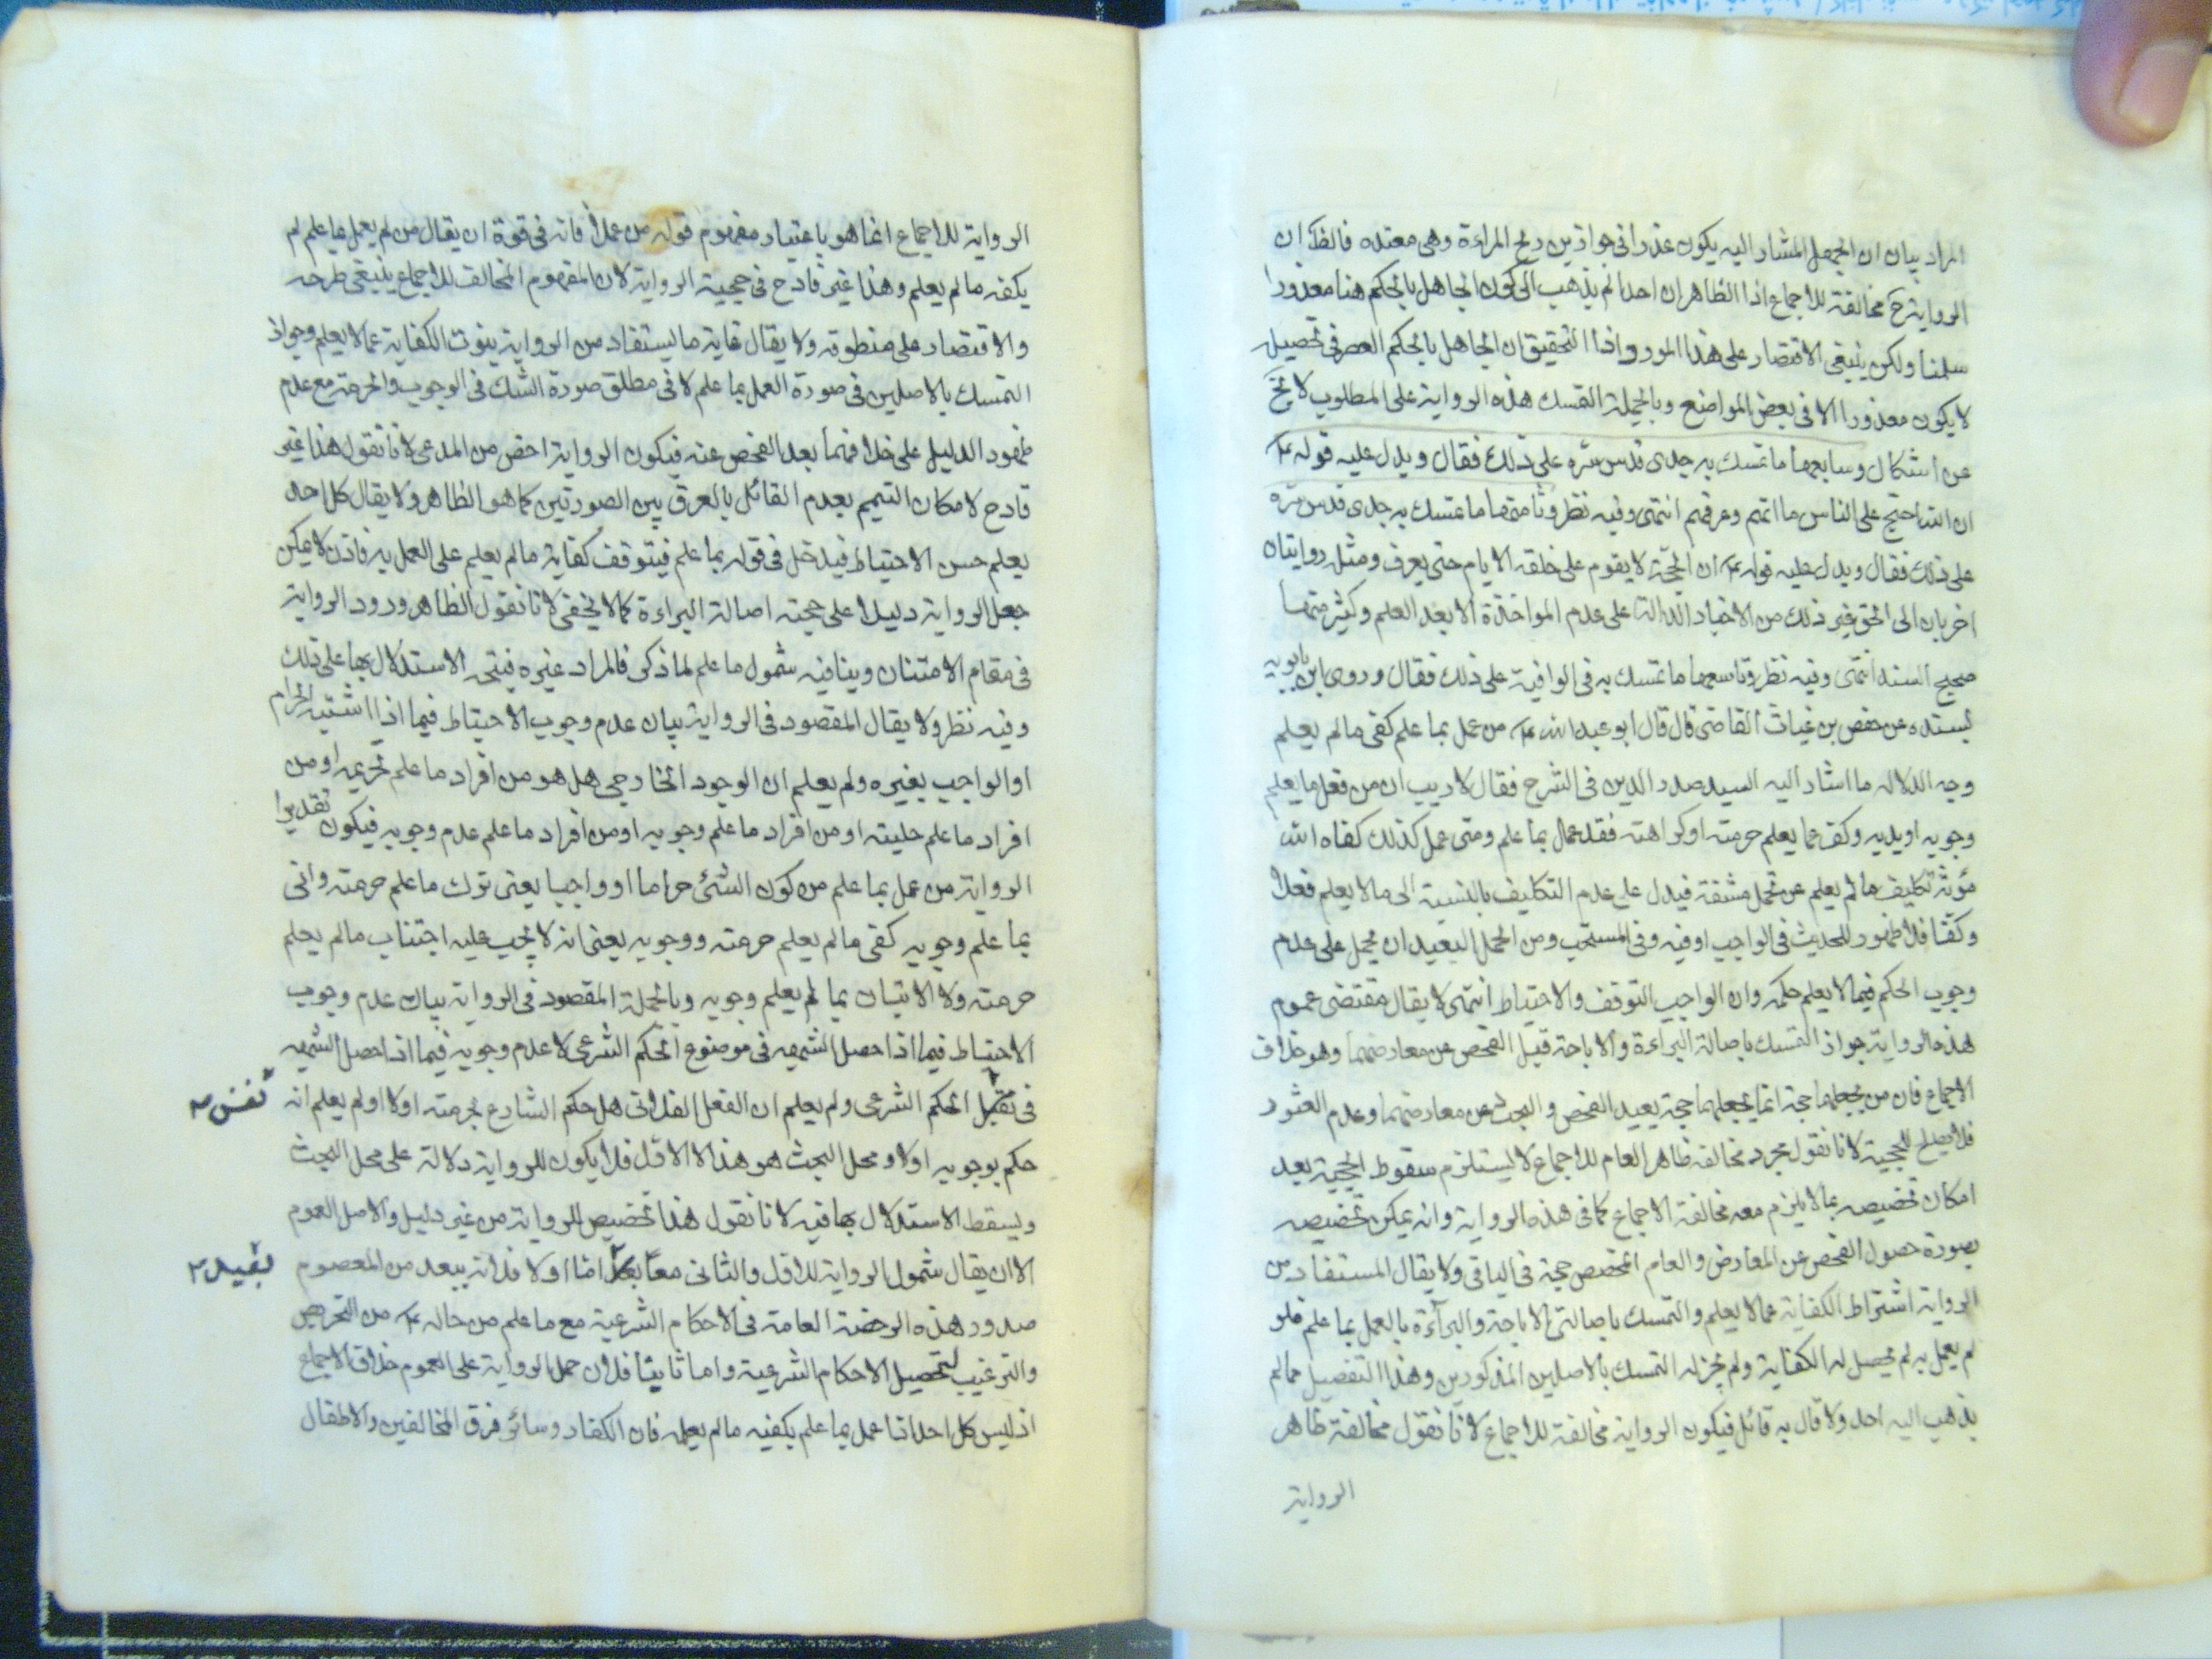 المراد بيان ان الجهل المشار اليه يكون عذرا في جواز تزويج المراءة وهى معتده فالظ ان
الرواية ح مخالفة للاجماع اذا الظاهر ان احدا لم يذهب الى كون الجاهل بالحكم هنا معذورا
سلمنا ولكن ينبغى الاقتصار على هذا المورد واذا التحقيق ان الجاهل بالحكم المقصر فى تحصيله
لا يكون معذورا الا فى بعض المواضع وبالجملة التمسك هذه الرواية على المطلوب لا يخ
عن اشكال وسابعها ما تمسك به جدى قدس سره على ذلك فقال ويدل عليه قوله ع
ان الله احتج على الناس ما اتيهم وعرفهم انتهى وفيه نظر وثامنها ما تمسك به جدى قدس سره
على ذلك فقال ويدل عليه قوله ع ان الحجة لا يقوم على خلقه الا بامام حتى يعرف ومثله روايتان
اخريان الى الحق غير ذلك من الاخبار الدالة على عدم المواخذة الا بعد العلم وكثير منها
صحيح السند انتهى وفيه نظر وتاسعها ما تمسك به فى الوافية على ذلك فقال وروى ابن بابويه
بسنده عن حفص بن غياث القاضى قال قال ابو عبد الله ع من عمل بما علم كفى ما لم يعلم
وجه الدلاله ما اشار اليه السيد صدر الدين فى الشرح فقال لا ريب ان من فعل ما يعلم
وجوبه او ندبه وكف عما يعلم حرمته او كراهته فقد عمل بما علم ومتى عمل كذلك كفاه الله
مؤنة تكليف ما لم يعلم عن تحمل مشقة فيدل على عدم التكليف بالنسبة الى ما لا يعلم فعلا
وكفا فلا ظهور للحديث فى الواجب او فيه وفى المستحب ومن المحمل البعيد ان يحمل على عدم
وجوب الحكم فيما لا يعلم حكمه وان الواجب التوقف والاحتياط انتهى لا يقال مقتضى عموم
هذه الرواية جواز التمسك باصالة البراءة والاباحة قبل الفحص عن معارضهما وهو خلاف
الاجماع فان من يجعلهما حجة انما يجعلهما حجة بعيد الفحص والبحث عن معارضهما وعدم العثور
فلا يصلح للحجية لانا نقول مجرد مخالفة ظاهر العام للاجماع لا يستلزم سقوط الحجية بعد
امكان تخصيصه بما لا يلزم معه مخالفة الاجماع كما فى هذه الرواية وانه يمكن تخصيصه
بصورة حصول الفحص عن المعارض والعام المخصص حجة فى الباقى ولا يقال المستفاد من
الرواية اشتراط الكفاية عما لا يعلم والتمسك باصالتى الاباحة والبراءة بالعمل بما علم فلو
لم يعمل به لم يحصل له الكفاية ولم يجز له التمسك بالاصلين المذكورين وهذا التفصيل مما لم
يذهب اليه احد ولا قال به قائل فيكون الرواية مخالفة للاجماع لانا نقول مخالفة ظاهر
الرواية
الرواية للاجماع انما هو باعتبار مفهوم قوله من عمل الخ فانه فى قوة ان يقال من لم يعمل بما علم لم
يكفه ما لم يعلم وهذا غير قادح فى حجية الرواية لان المفهوم المخالف للاجماع ينبغى طرحه
والاقتصار على منطوقه ولا يقال غاية ما يستفاد من الرواية ثبوت الكفاية عما لا يعلم وجواز
التمسك بالاصلين فى صورة العمل بما علم لا فى مطلق صورة الشك فى الوجوب والحرمة مع عدم
ظهور الدليل على خلافهما بعد الفحص عنه فيكون الرواية اخص من المدعى لانا نقول هذا غير
قادح لامكان التتميم بعدم القائل بالفرق بين الصورتين كما هو الظاهر ولا يقال كل احد
يعلم حسن الاحتياط فيدخل فى قوله بما علم فيتوقف كفاية ما لم يعلم على العمل به فاذن لا يمكن
جعل الرواية دليلا على حجية اصالة البراءة كما لا يخفى لانا نقول الظاهر ورود الرواية
فى مقام الامتنان وينافيه شمول ما علم لما ذكر فالمراد غيره فيتجه الاستدلال بها على ذلك
وفيه نظر ولا يقال المقصود فى الرواية بيان عدم وجوب الاحتياط فيما اذا اشتبه الحرام
او الواجب بغيره ولم يعلم ان الوجود الخارجى هل هو من افراد ما علم تحريمه او من
افراد ما علم حليته او من افراد ما علم وجوبه او من افراد ما علم عدم وجوبه فيكون تقدير
الرواية من عمل بما علم من كون الشئ حراما او واجبا يعنى ترك ما علم حرمته واتى
بما علم وجوبه كفى ما لم يعلم حرمته ووجوبه يعنى انه لا يجب عليه اجتناب ما لم يعلم
حرمته ولا الاتيان بما لم يعلم وجوبه وبالجملة المقصود فى الرواية بيان عدم وجوب
الاحتياط فيما اذا حصل الشبهه فى موضوع الحكم الشرعى لا عدم وجوبه فيما اذا حصل الشبهه
فى الحكم الشرعى ولم يعلم ان الفعل الفلانى هل حكم الشارع بحرمته اولا او لم يعلم انه
نفس
حكم بوجوبه اولا ومحل البحث هو هذا لا الاول فلا يكون للرواية دلالة على محل البحث
ويسقط الاستدلال بها فيه لانا نقول هذا تخصيص للرواية من غير دليل والاصل العموم
الا ان يقال شمول الرواية للاول والثانى معا اما اولا فلانه يبعد من المعصوم
بعيد
صدور هذه الرخصة العامة فى الاحكام الشرعية مع ما علم من حاله ع من التحريص
والترغيب لتحصيل الاحكام الشرعية واما ثانيا فلان حمل الرواية على العموم خلاف الاجماع
اذ ليس كل احد اذا عمل بما علم يكفيه ما لم يعلمه فان الكفار وسائر فرق المخالفين والاطفال